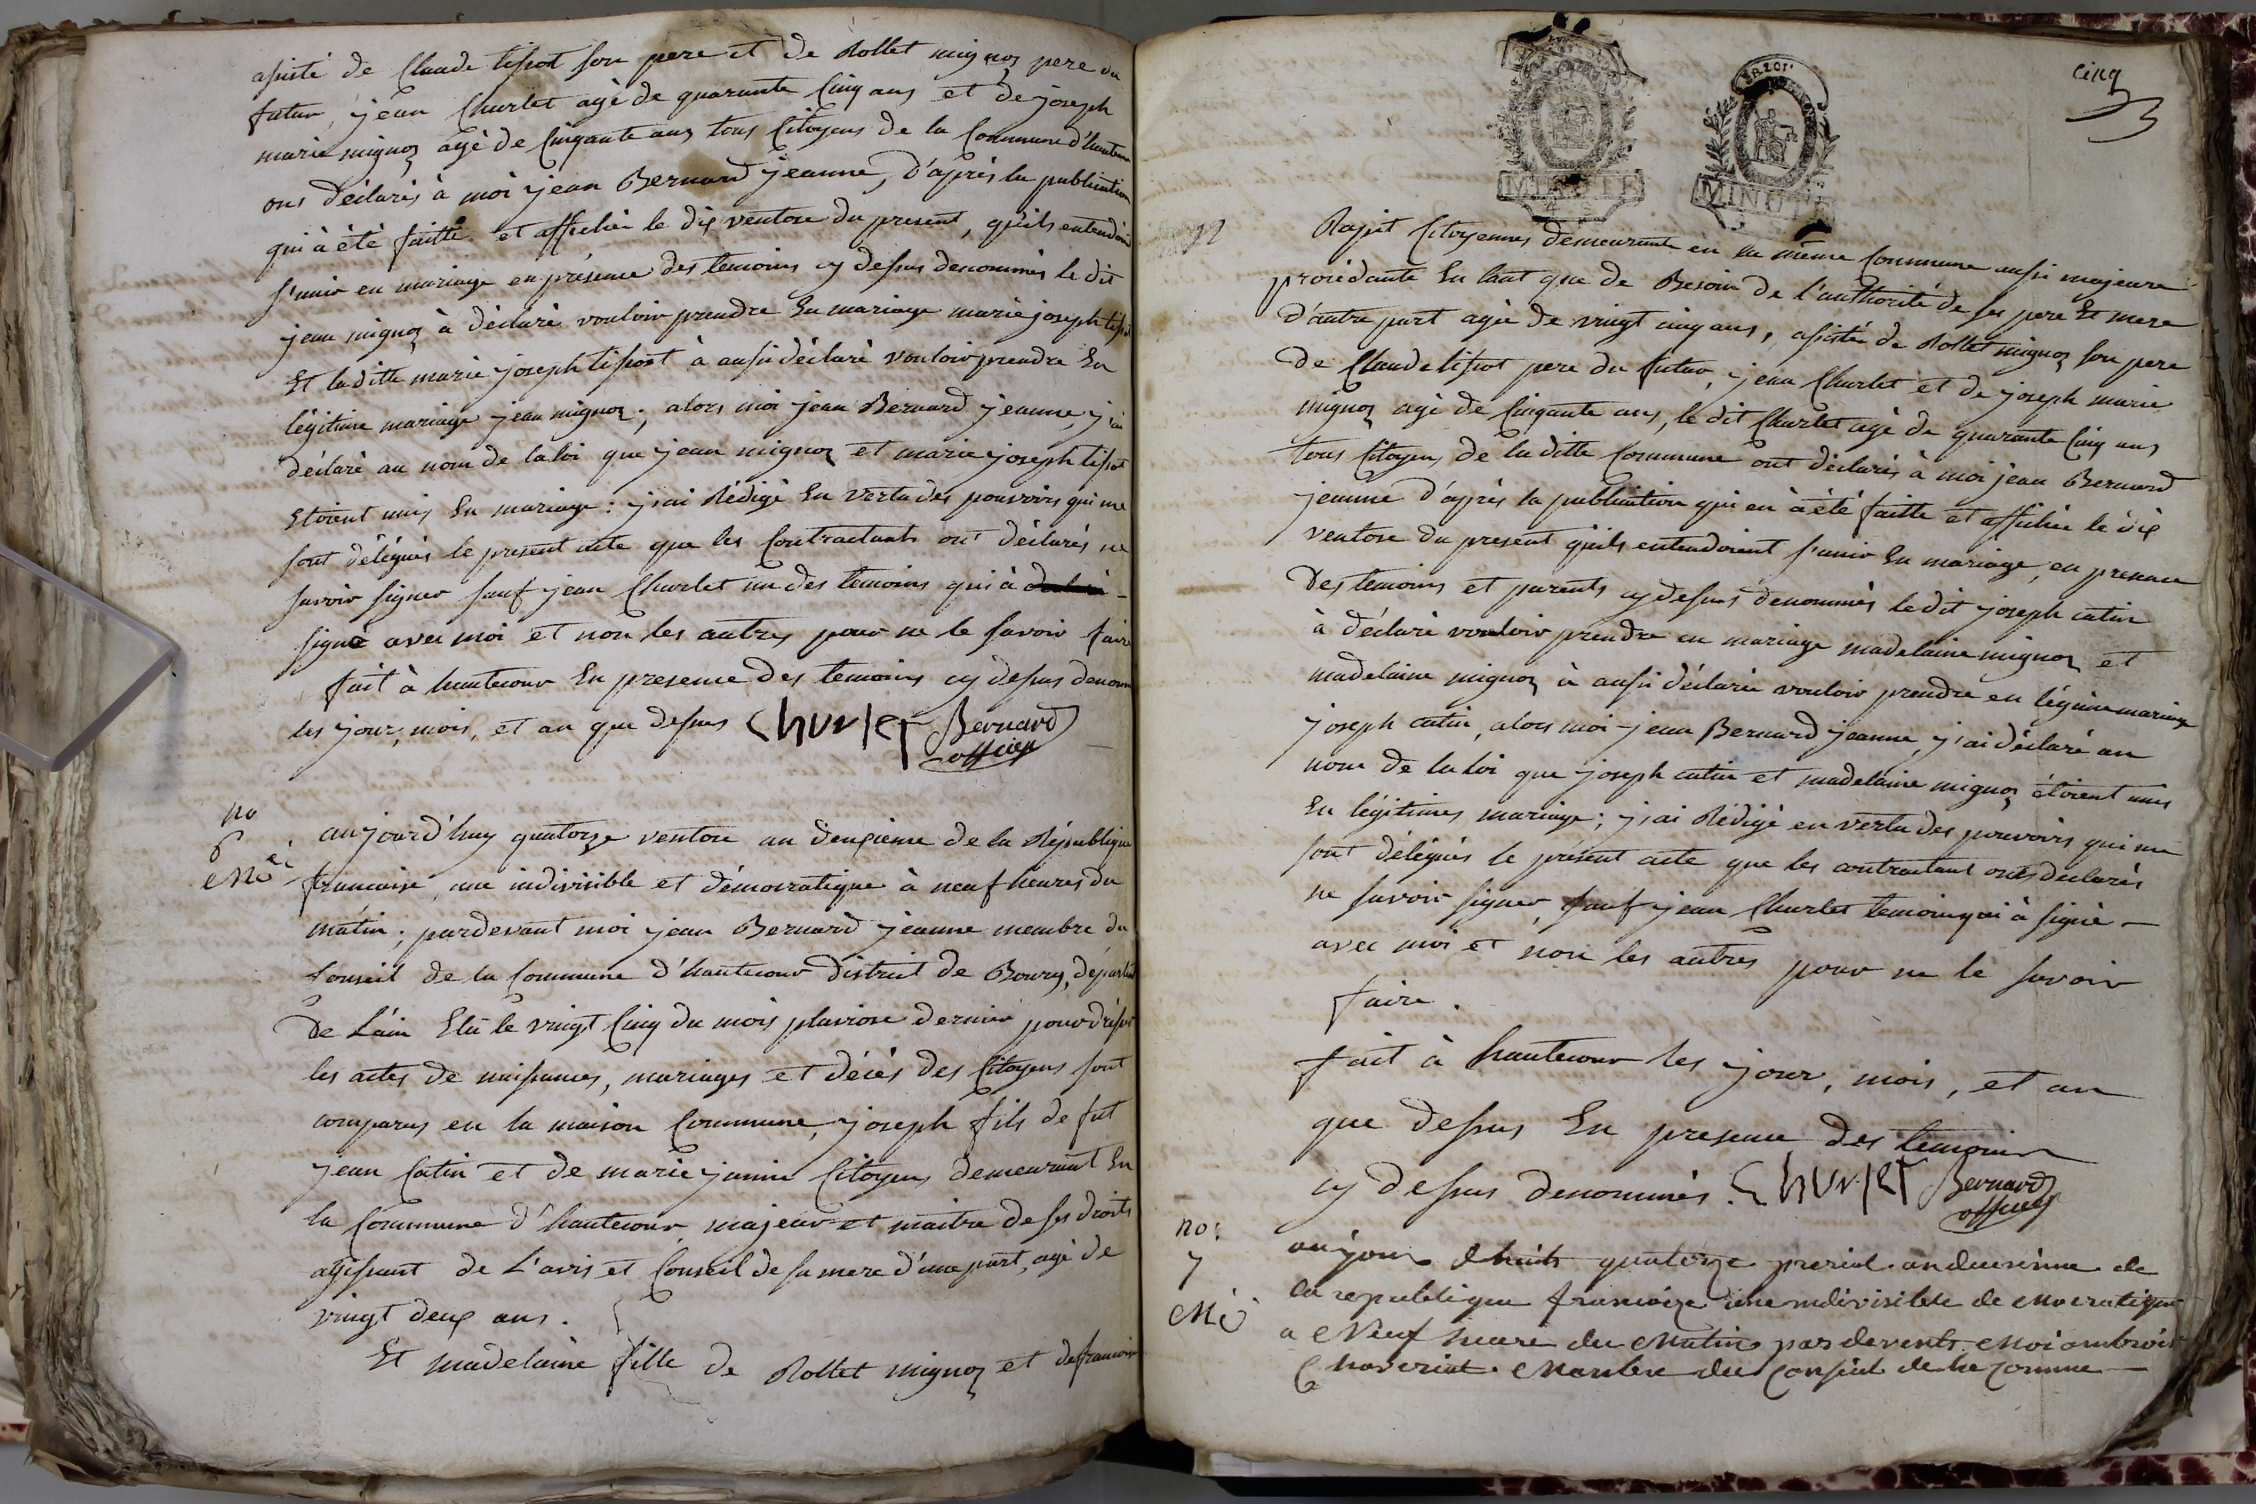 asisté de Claude tissot son pere et de Rollet mignoz pere du
futur, jean Churlet agé de quarante Cinq ans et de joseph
marie mignoz agé de Cinqante ans tous Citoyens de la Commune d'hautecour
ons déclarés à moi jean Bernard jeanne, d'après la publication
qui à été faitte et affichée le dix ventose du present, qu'ils entendoient
s'unir en mariage en présence des temoins cy dessus denommés le dit
jean mignoz à déclaré vouloir prendre En mariage marie joseph tissot
Et la ditte marie joseph tissot à aussi déclaré vouloir prendre En
légitime mariage jean mignoz; alors moi jean Bernard jeanne, j'ai
déclaré au nom de la loi que jean mignoz et marie joseph tissot
Etoient unis En mariage: j'ai Rédigé En vertu des pouvoirs qui me
sont délégués le present acte que les Contractants ont déclarés ne
savoir signer sauf jean Churlet un des temoins qui à
signé avec moi et non les autres pour ne le savoir faire
fait à hautecour En presence des temoins cy dessus denom
les jour, mois, et an que dessus Churlet Bernard
officier
no
6
Me
aujourd'huy quatorze ventose an deuxième de la République
francaise, une indivisible et démocratique à neuf heures du
matin; pardevant moi jean Bernard jeanne membre du
Conseil de la Commune d'hautecour district de Bourg, departement
De l'ain Elû le vingt Cinq du mois pluviose dernier pour dresser
les actes de naissances, mariages et décés des Citoyens sont
comparus en la maison Commune, joseph fils de fut
jean Catin et de marie janin Citoyens demeurant En
la Commune d'hautecour majeur et maitre de ses droits
agissant de L'avis et Conseil de sa mere d'une part, agé de
vingt deux ans.
Et madelaine fille de Rollet mignoz et de francoise
cinq
MINUTE
MINUTE
Rajit Citoyennes demeurante en la même Commune aussi majeure
procédante En tant que de Besoin de l'authorité de ses pere Et mere
d'autre part agée de vingt cinq ans, asistée de Rollet mignoz son pere
de Claude tissot pere du futur, jean Churlet et de joseph marie
mignoz agé de Cinqante ans, le dit Churlet agé de quarante Cinq ans
tous Citoyens de la ditte Commune ont déclarés à moi jean Bernard
jeanne d'après la publication qui en à été faitte et affichée le dix
ventose du present qu'ils entendoient s'unir En mariage, en presence
des temoins et parents cy dessus denommés le dit joseph catin
à déclaré vouloir prendre en mariage madelaine mignoz et
madelaine mignoz à aussi déclarée vouloir prendre en légitime mariage
joseph catin, alors moi jean Bernard jeanne j'ai déclaré au
nom de la loi que joseph catin et madelaine mignoz étoient unis
En légitimes mariage; j'ai Rédigé en vertu des pouvoirs qui me
sont délégués le présent acte que les contractant onts declarés
ne savoir signer, sauf jean Churlet temoin qui à signé
avec moi et non les autres pour ne le savoir
faire.
fait à hautecour les jour, mois, et an
que dessus En presence des temoins
cy dessus denommés. Churlet Bernard
officier
no:
7
Me
aujour dhuit quatorze prerial an deusieme de
la republique francoize une indivisible de Mocratique
a Neuf heure du Matin par devents Moi ambrois
Chaveriat Manbre du Conseil de la comme